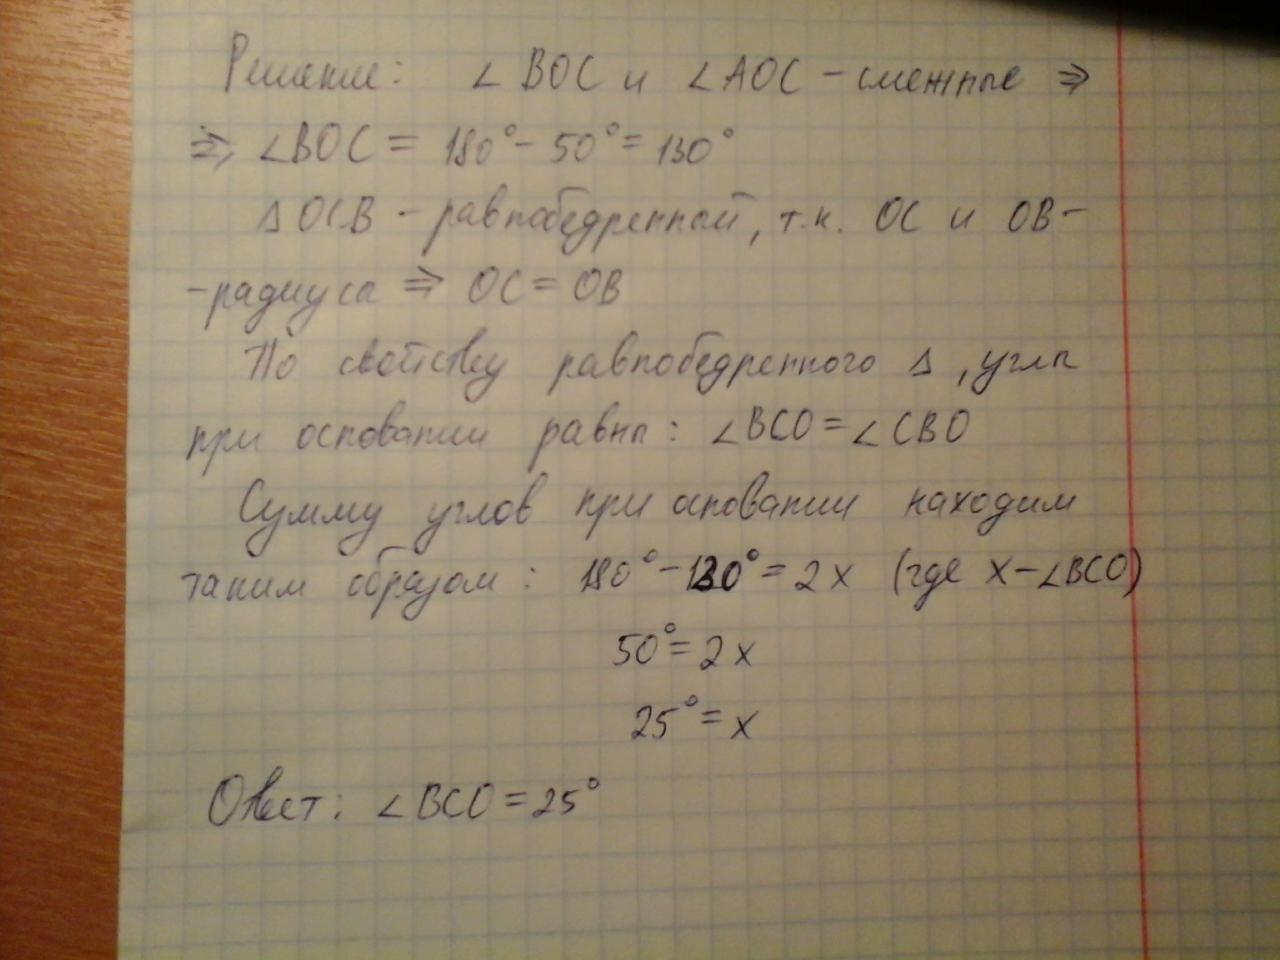 Решение: ∠BOC и ∠AOC – смежные ⇒
⇒, ∠BOC = 180° – 50° = 130°
△OCB – равнобедренный, т.к. OC и OB –
– радиусы ⇒ OC = OB
По свойству равнобедренного △, углы
при основании равны: ∠BCO = ∠CBO
Сумму углов при основании находим
таким образом: 180° – 130° = 2x (где x – ∠BCO)
50° = 2x
25° = x
Ответ: ∠BCO = 25°